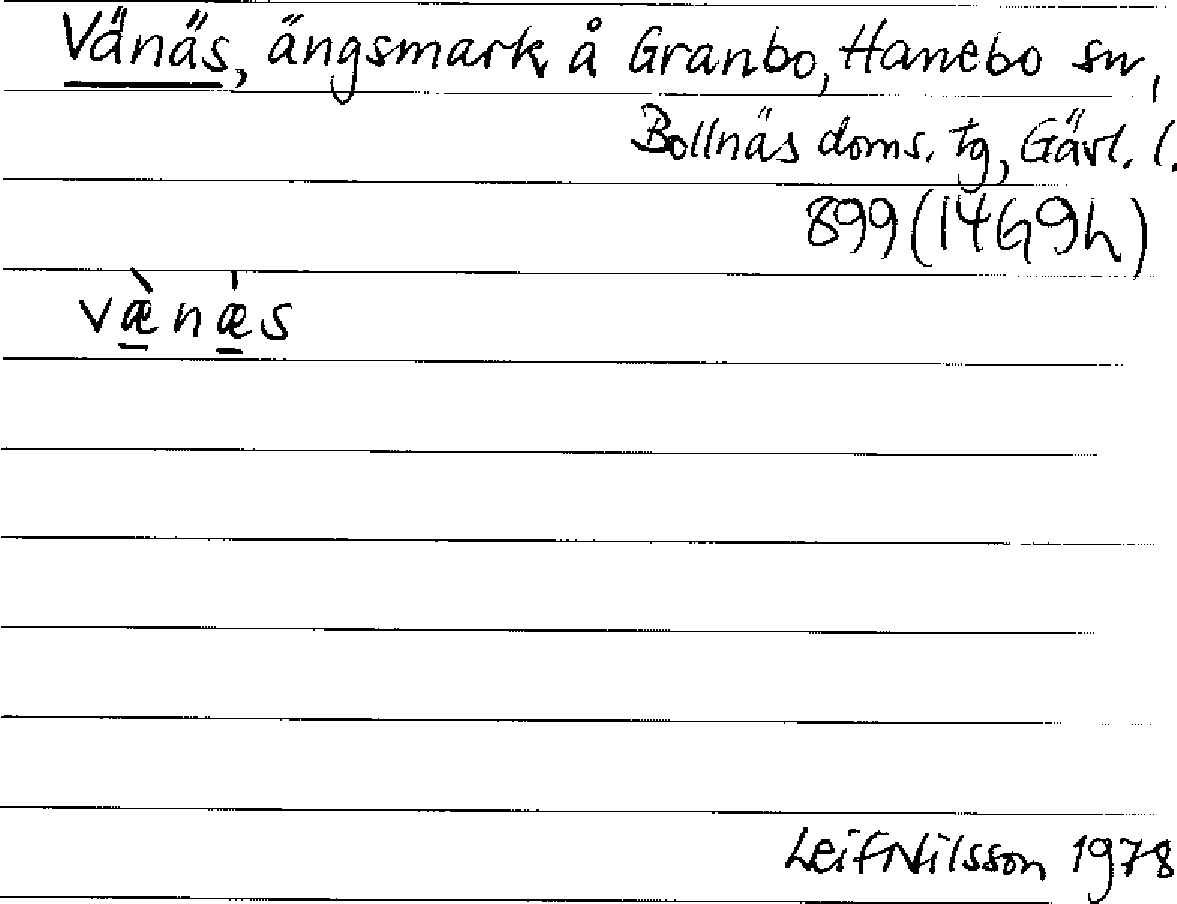 Vänäs, ängsmark å Granbo, Hanebo sn,
Bollnäs doms. tg, Gävl. l.
899 (14G9h)
væ̠̀nǽ̠s
Leif Nilsson 1978